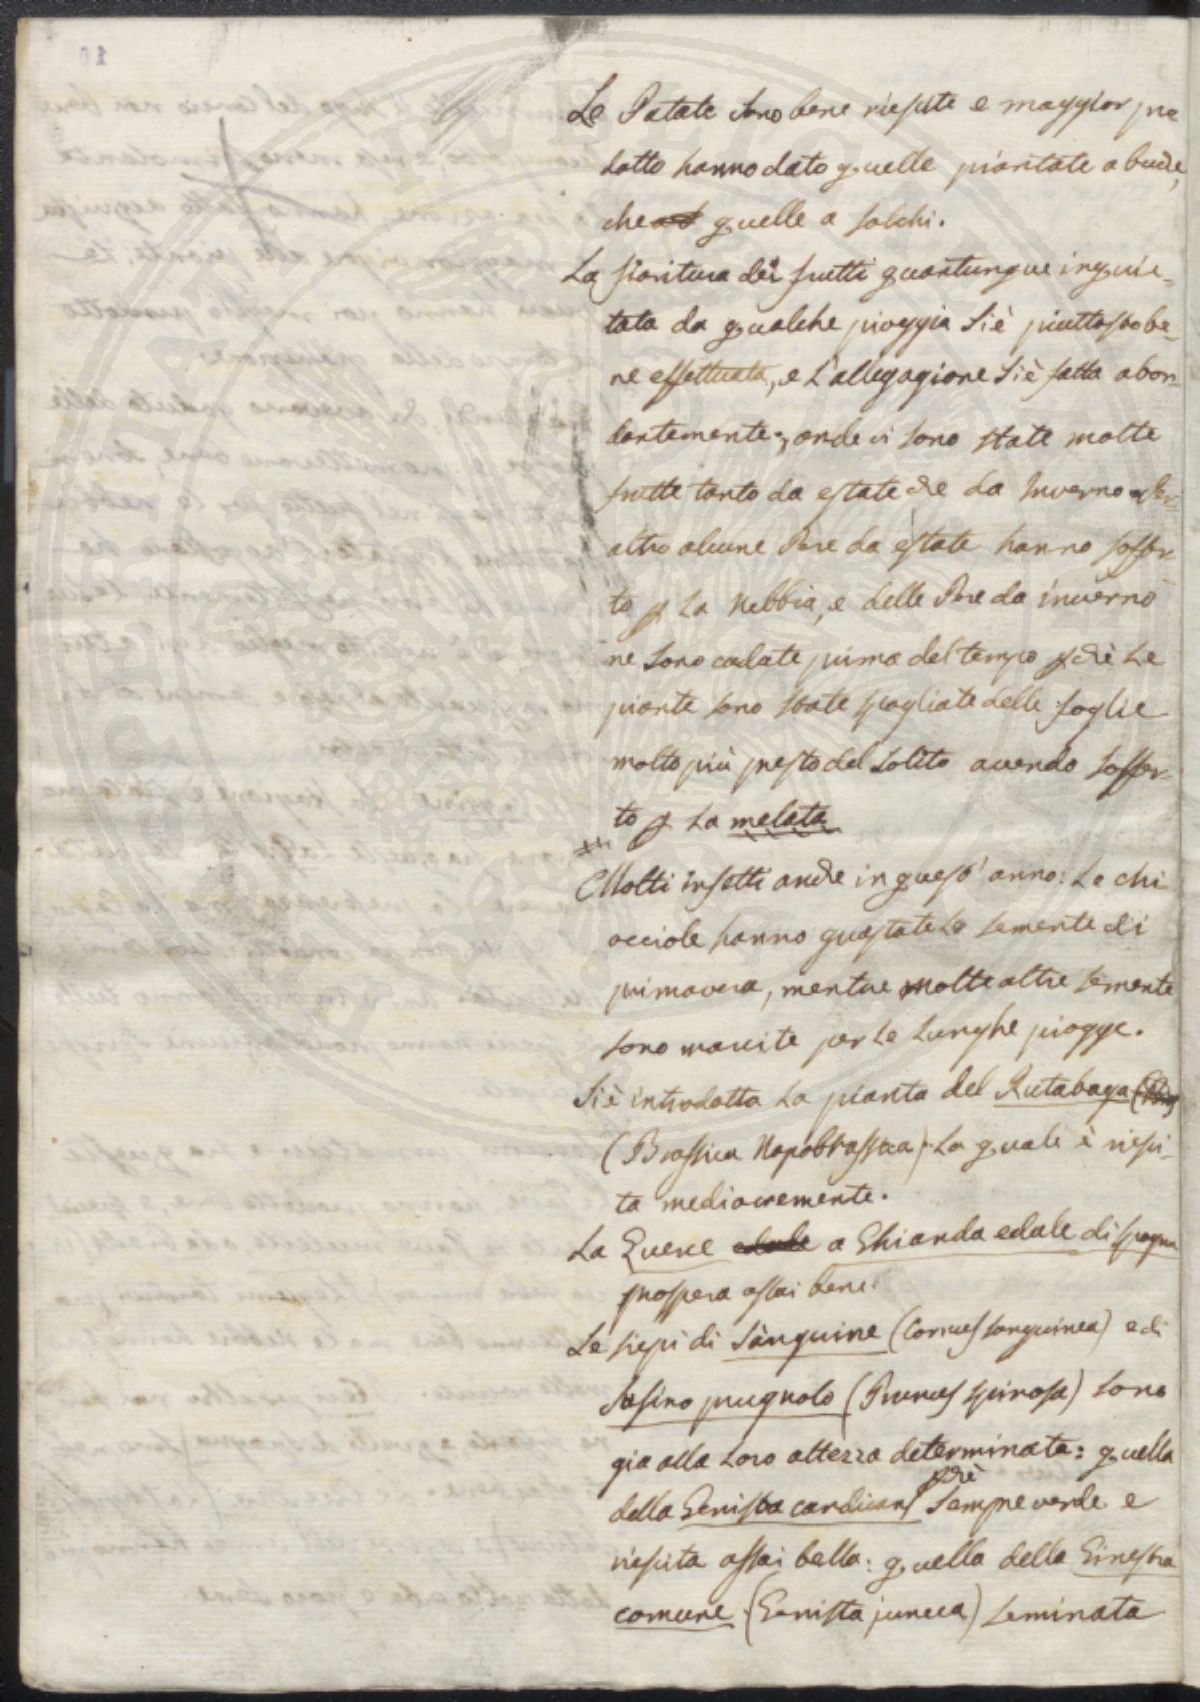 Le Patate sono bene riescite e maggior pro
dotto hanno dato quelle piantate a buche,
che quelle a solchi.
La fioritura dei frutti quantunque inquie-
tata da qualche pioggia si è piuttosto be-
ne effettuata, e l'allegagione si è fatta abon-
dantemente, onde vi sono state molte
frutte tanto da estate che da Inverno. Per
altro alcune Pere da estate hanno soffer-
to p la Nebbia, e delle Pere da inverno
ne sono cadute prima del tempo pchè le
piante sono state spogliate delle foglie
molto più presto del solito avendo soffer-
to p la melata
Molti insetti anche in quest' anno: Le chi
occiole hanno guastate le semente di
primavera, mentre molte altre semente
sono marcite per le lunghe piogge.
Si è introdotta la pianta del Rutabaga
(Brassica Napobrassica) la quale è riesci-
ta mediocremente.
La Querce edule a Ghianda edule di Spagna
prospera assai bene.
Le siepi di Sanguine (Cornus sanguinea) e di
Susino prugnolo (Prunus spinosa) sono
gia alla loro altezza determinata: quella
della Genista candicans pchè sempre verde e
riescita assai bella: quella della Ginestra
comune (Genista juncea) seminata